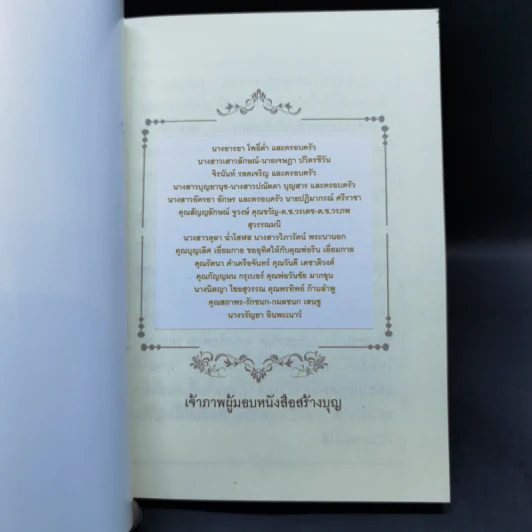 นางอารยา โพธิ์คำ และครอบครัว
นางสาวเสาวลักษณ์-นายเจษฎา ปวิตรชีวัน
จิรนันท์ รอดเจริญ และครอบครัว
นางสาวบุญยานุช-นางสาวปณัดดา บุญสาร และครอบครัว
นางสาวอัครยา อักษร และครอบครัว นายปฏิมากรณ์ ศรีราชา
คุณสัญญลักษณ์ จูวงษ์ คุณขวัญ-ด.ช.วรเดช-ด.ช.วรภพ
สุวรรณมณี
นางสาวตุลา นางสาววิภารัตน์ พระนานอก
คุณบุญเลิศ เอี่ยมกาย ขออุทิศให้กับคุณพ่อริน เอี่ยมกาย
คุณรัตนา คำเครือจันทร์ คุณวันดี เดชาติวงศ์
คุณกัญญมน กรุเบอร์ คุณพ่อวันชัย มากชุน
นางนิตญา ไชยสุวรรณ คุณพรทิพย์ ก้านลำพู
คุณสถาพร-รักชนก-กมลชนก เสนชู
นางวรัญยา อินทะเนาว์
เจ้าภาพผู้มอบหนังสือสร้างบุญ